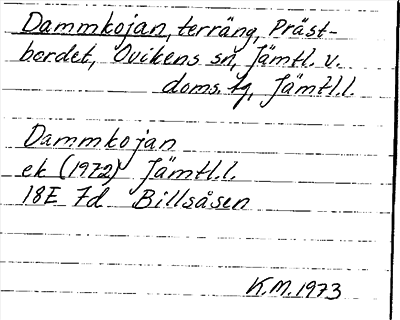 Dammkojan, terräng, Präst-
bordet, Ovikens sn, Jämtl. v.
doms. tg, Jämtl.l.
Dammkojan
ek (1972) Jämtl.l.
18E 7d Billsåsen
K.M. 1973